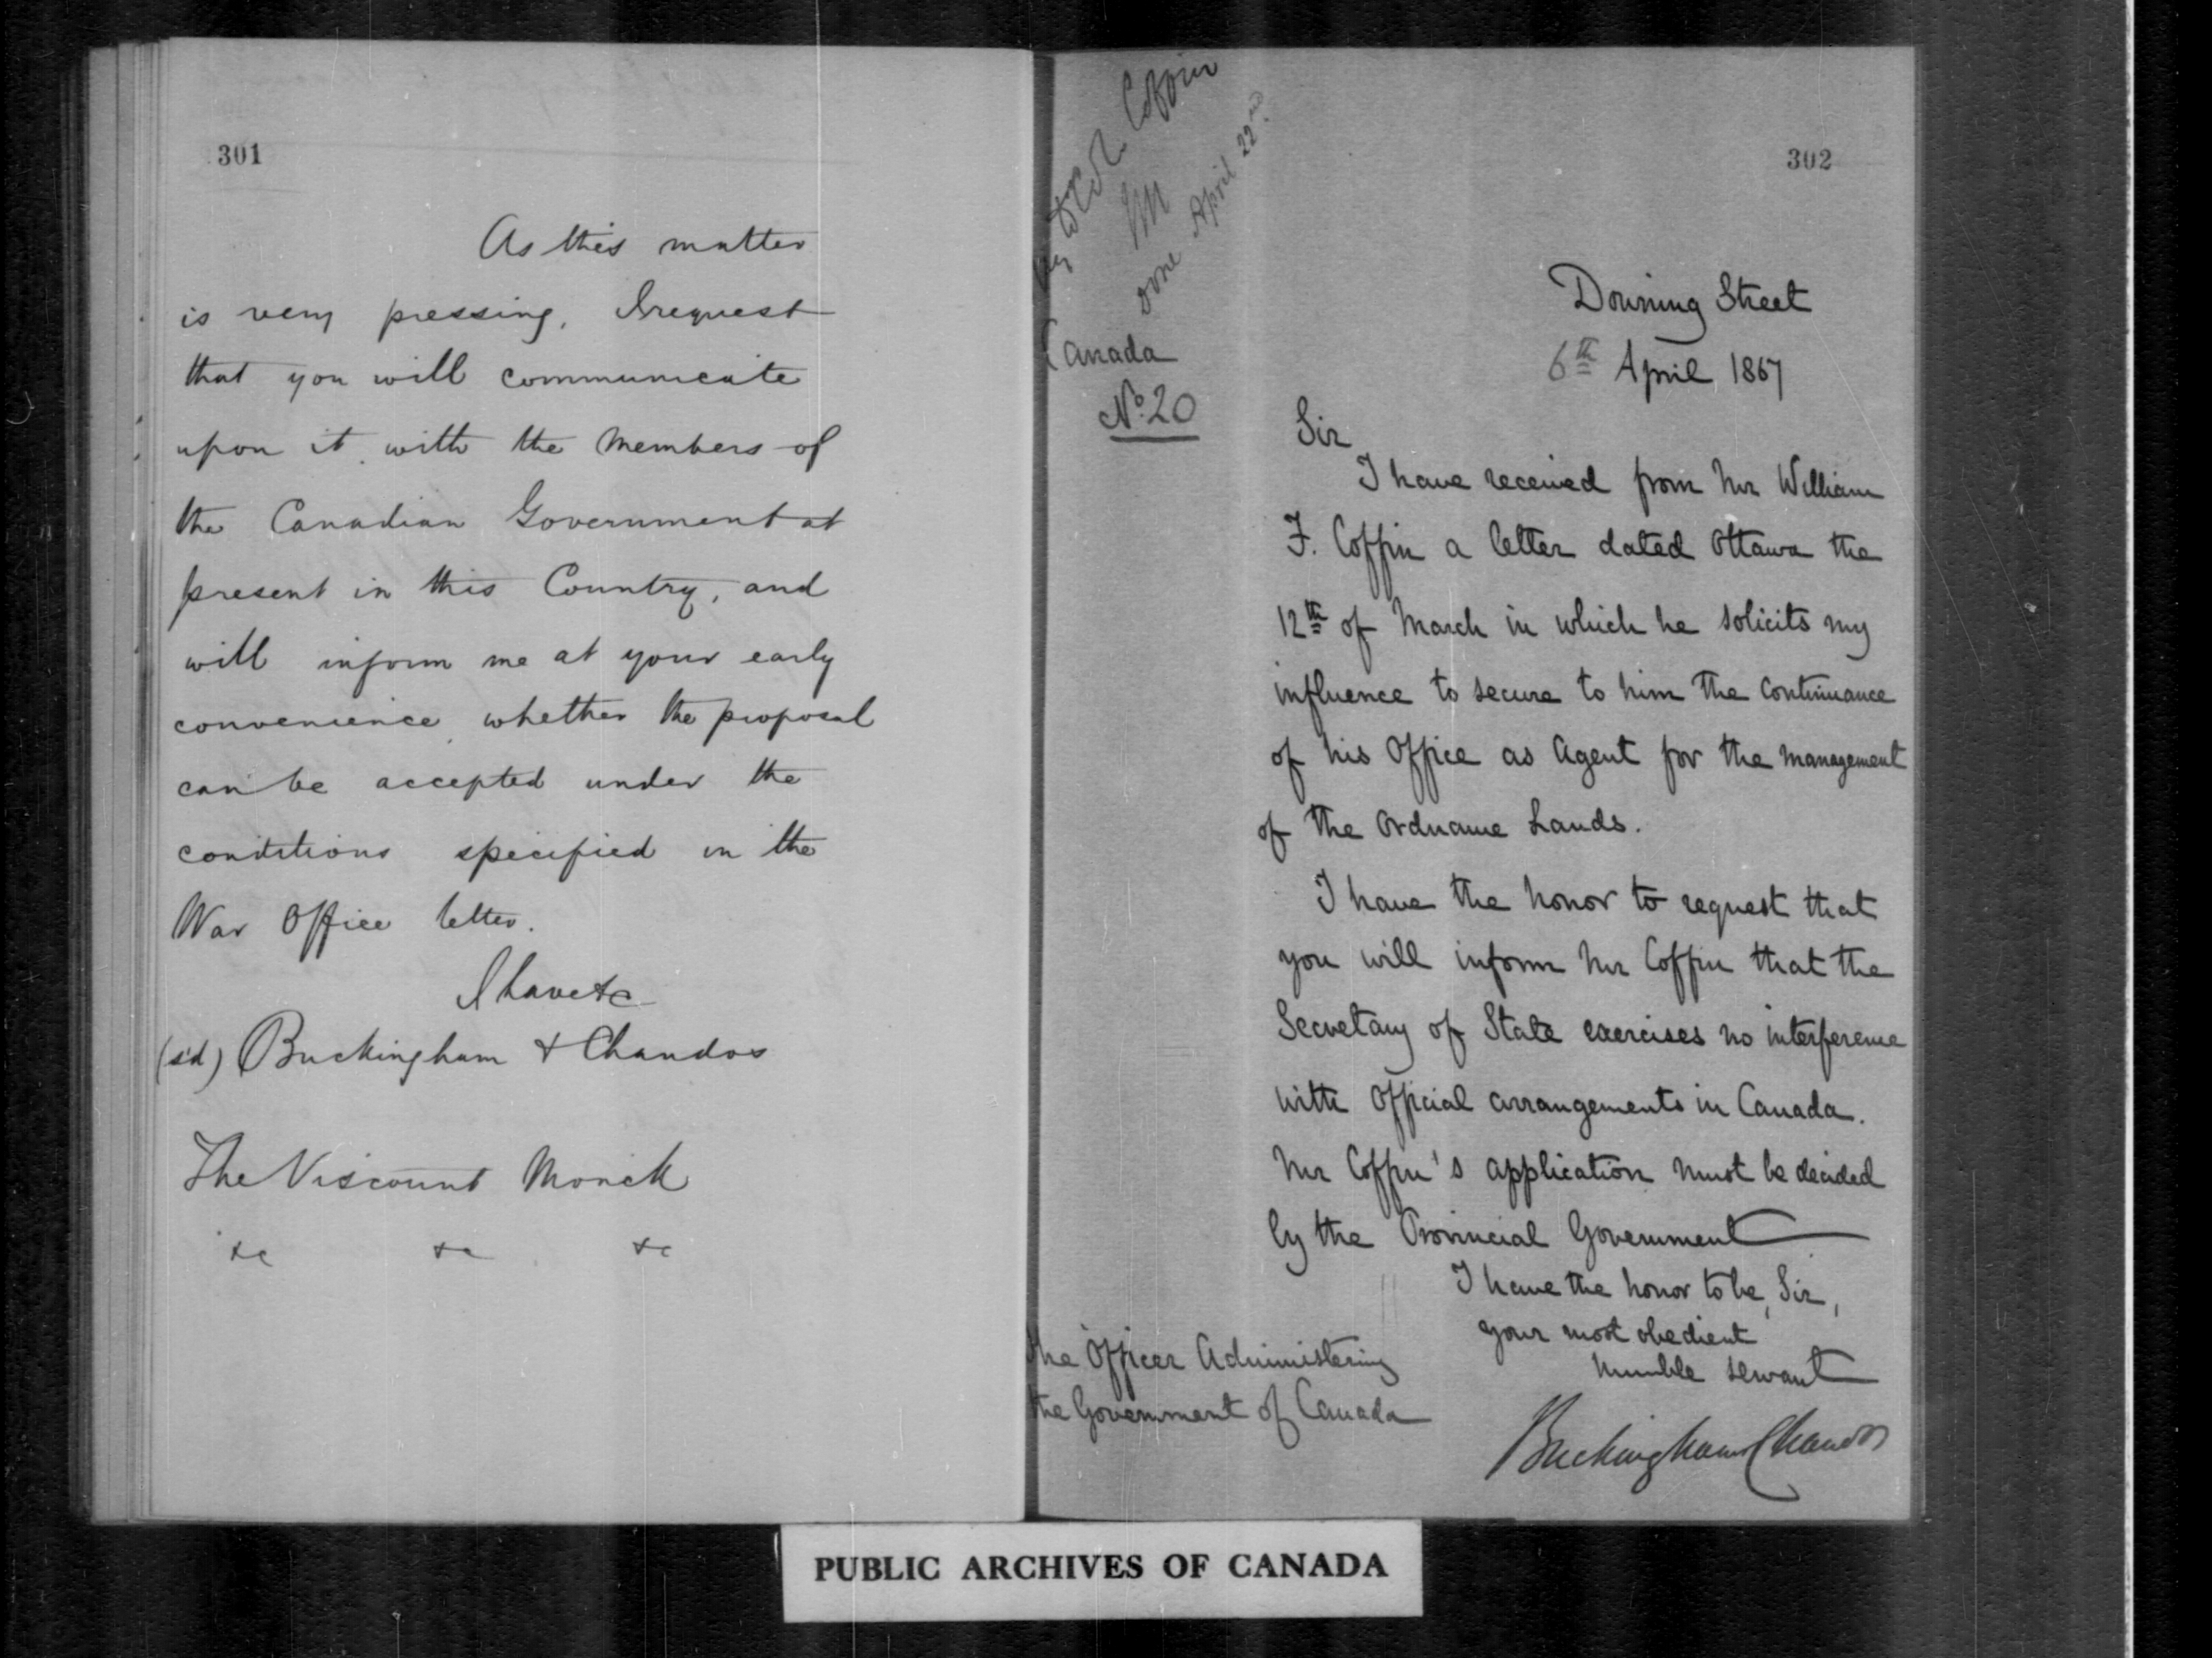 301
As this matter
is very pressing, I request
that you will communicate
upon it with the Members of
the Canadian Government at
present in this Country, and
will inform me at your early
convenience whether the proposal
can be accepted under the
conditions specified in the
War Office letter.
I have &c
(sd) Buckingham & Chandos
The Viscount Monck
&c &c &c
302
Col Coffin
M
done April 22nd.
Canada
No. 20
Downing Street
6th April 1867
Sir
I have received from Mr William
F. Coffin a letter dated Ottawa the
12th of March in which he solicits my
influence to secure to him the continuance
of his Office as Agent for the management
of the Ordnance Lands.
I have the honor to request that
you will inform Mr Coffin that the
Secretary of State exercises no interference
with Official arrangements in Canada.
Mr Coffin's application must be decided
by the Provincial Government
I have the honor to be, Sir,
your most obedient
humble servant
Buckingham Chandos
The Officer Administering
the Government of Canada
PUBLIC ARCHIVES OF CANADA